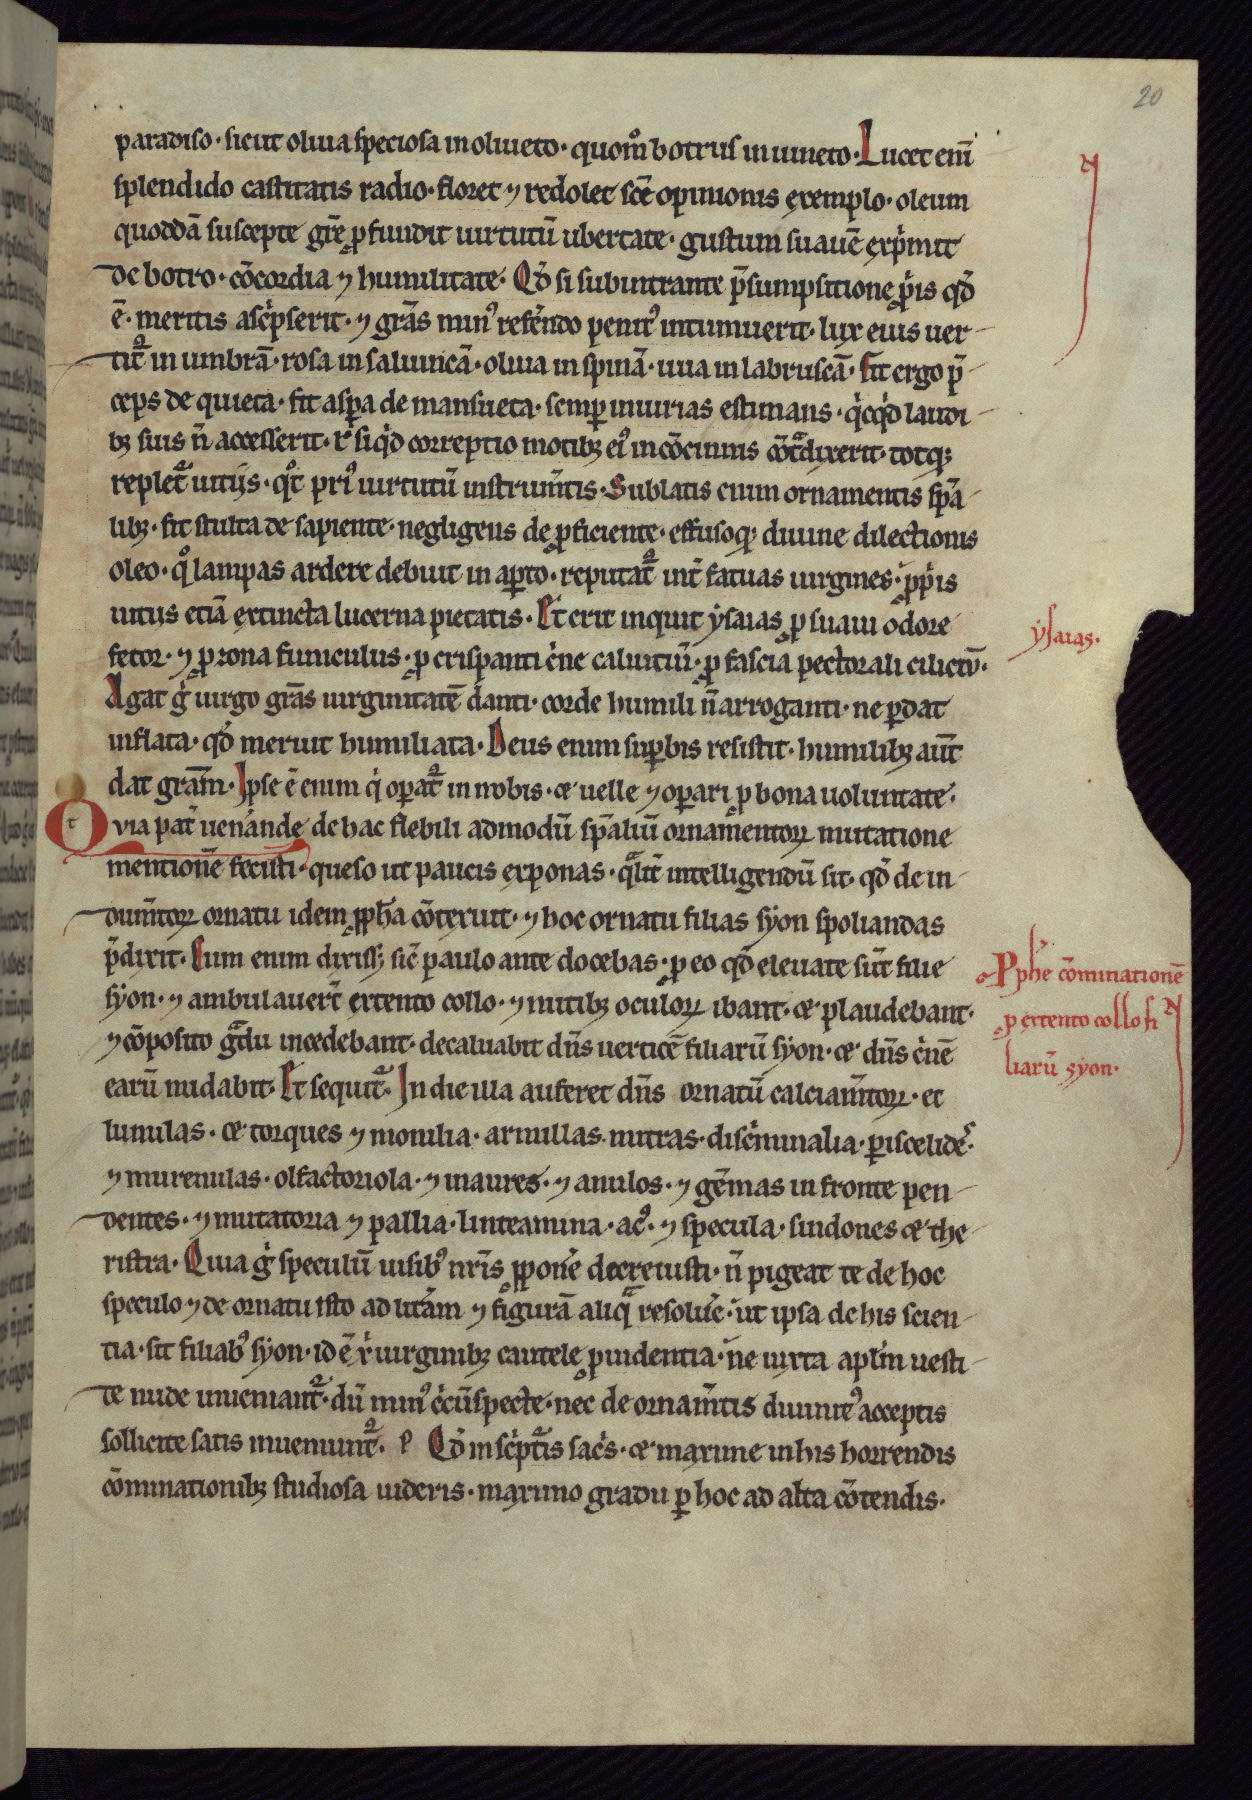 20
paradiso · sicut oliua speciosa in oliueto · quom̊ botrus in uineto · Lucet eni̅
splendido castitatis radio · floret ⁊ redolet sc̅e opinionis exemplo · oleum
quodda̅ suscepte gr̅e ꝓfundit uirtutu̅ ubertate · gustum suaue̅ exp̍mit
de botro · co̅cordia ⁊ humilitate · Qd̅ si subintrante p̅sumpsitione ꝓp̍is qd̅
e̅ · meritis asc̍pserit · ⁊ gra̅s minꝰ refe̅ndo penitꝰ intumuerit · lux eius uer-
tit᷑ in umbra̅ · rosa in saliunca̅ · oliua in spina̅ · uua in labrusca̅ · Fit ergo p̅-
ceps de quieta · fit asꝑa de mansueta · semꝑ iniurias estimans · q̍cq̍d laudi-
bꝫ suis n̅ accesserit · ł siq̍d correptio motibꝫ eiꝰ inco̅cinnis co̅tᷓdixerit · totqꝫ
replet᷑ uitiis · qͦt priꝰ uirtutu̅ instrum̅tis · Sublatis enim ornamentis sp̅a-
libꝫ · fit stulta de sapiente · negligens de ꝓficiente · effusoqꝫ diuine dilectionis
oleo · qͦ lampas ardere debuit in aꝑto · reputat᷑ int̅ fatuas uirgines · ꝓp̍is
uitiis etia̅ extincta lucerna pietatis · Et erit inquit ysaias ꝓ suaui odore
fetor · ⁊ ꝓ zona funiculus · ꝓ crispanti c̍ne caluitiu̅ · ꝓ fascia pectorali ciliciu̅ ·
Agat g̍ uirgo gra̅s uirginitate̅ danti · corde humili n̅ arroganti · ne ꝑdat
inflata · qd̅ meruit humiliata · Deus enim suꝑbis resistit · humilibꝫ aut̅
dat gra̅m · Ipse e̅ enim q̍ oꝑat᷑ in nobis · & uelle ⁊ oꝑari ꝓ bona uoluntate ·
Quia pat̅ uenande de hac flebili admodu̅ sp̅aliu̅ ornamentoꝝ mutatione
mentione̅ fecisti · queso ut paucis exponas · qᷓlit̅ intelligendu̅ sit · qd̅ de in-
dum̅toꝝ ornatu idem ꝓph̅a co̅texuit · ⁊ hoc ornatu filias syon spoliandas
p̅dixit · Cum enim dixissꝫ sic̅ paulo ante docebas · ꝓ eo qd̅ eleuate su̅t filie
syon · ⁊ ambulauer̅t extento collo · ⁊ nutibꝫ oculoꝝ ibant · & plaudebant ·
⁊ co̅posito gᷓdu incedebant · decaluabit dn̅s uertice̅ filiaru̅ syon · & dn̅s c̍ne̅
earu̅ nudabit · Et sequit᷑ · In die illa auferet dn̅s ornatu̅ calciam̅toꝝ · et
lunulas · & torques ⁊ monilia · armillas · mitras · disc̍minalia · ꝑiscelides ·
⁊ murenulas · olfactoriola · ⁊ inaures · ⁊ anulos · ⁊ ge̅mas in fronte pen-
dentes · ⁊ mutatoria ⁊ pallia · linteamina · acꝰ · ⁊ specula · sindones & the-
ristra · Quia g̍ speculu̅ uisibꝰ nr̅is ꝓpone̅ decreuisti · n̅ pigeat te de hoc
speculo ⁊ de ornatu isto ad litt̅am ⁊ figura̅ aliqᷓ resolue̅ · ut ipsa de his scien-
tia · sit filiabꝰ syon · id e̅ x̍ uirginibꝫ cautele ꝓuidentia · ne iuxta apl̅m uesti-
te nude inueniant᷑ · du̅ minꝰ c̍cu̅specte · nec de ornam̅tis diuinitꝰ acceptis
sollicite satis inueniunt᷑ · P Qd̅ in sc̍pt᷑is sac̍s · & maxime in his horrendis
co̅minationibꝫ studiosa uideris · maximo gradu ꝑ hoc ad alta co̅tendis ·
ysaias ·
Pphe̅ co̅minatione̅
ꝓ extento collo fi
liaru̅ syon ·